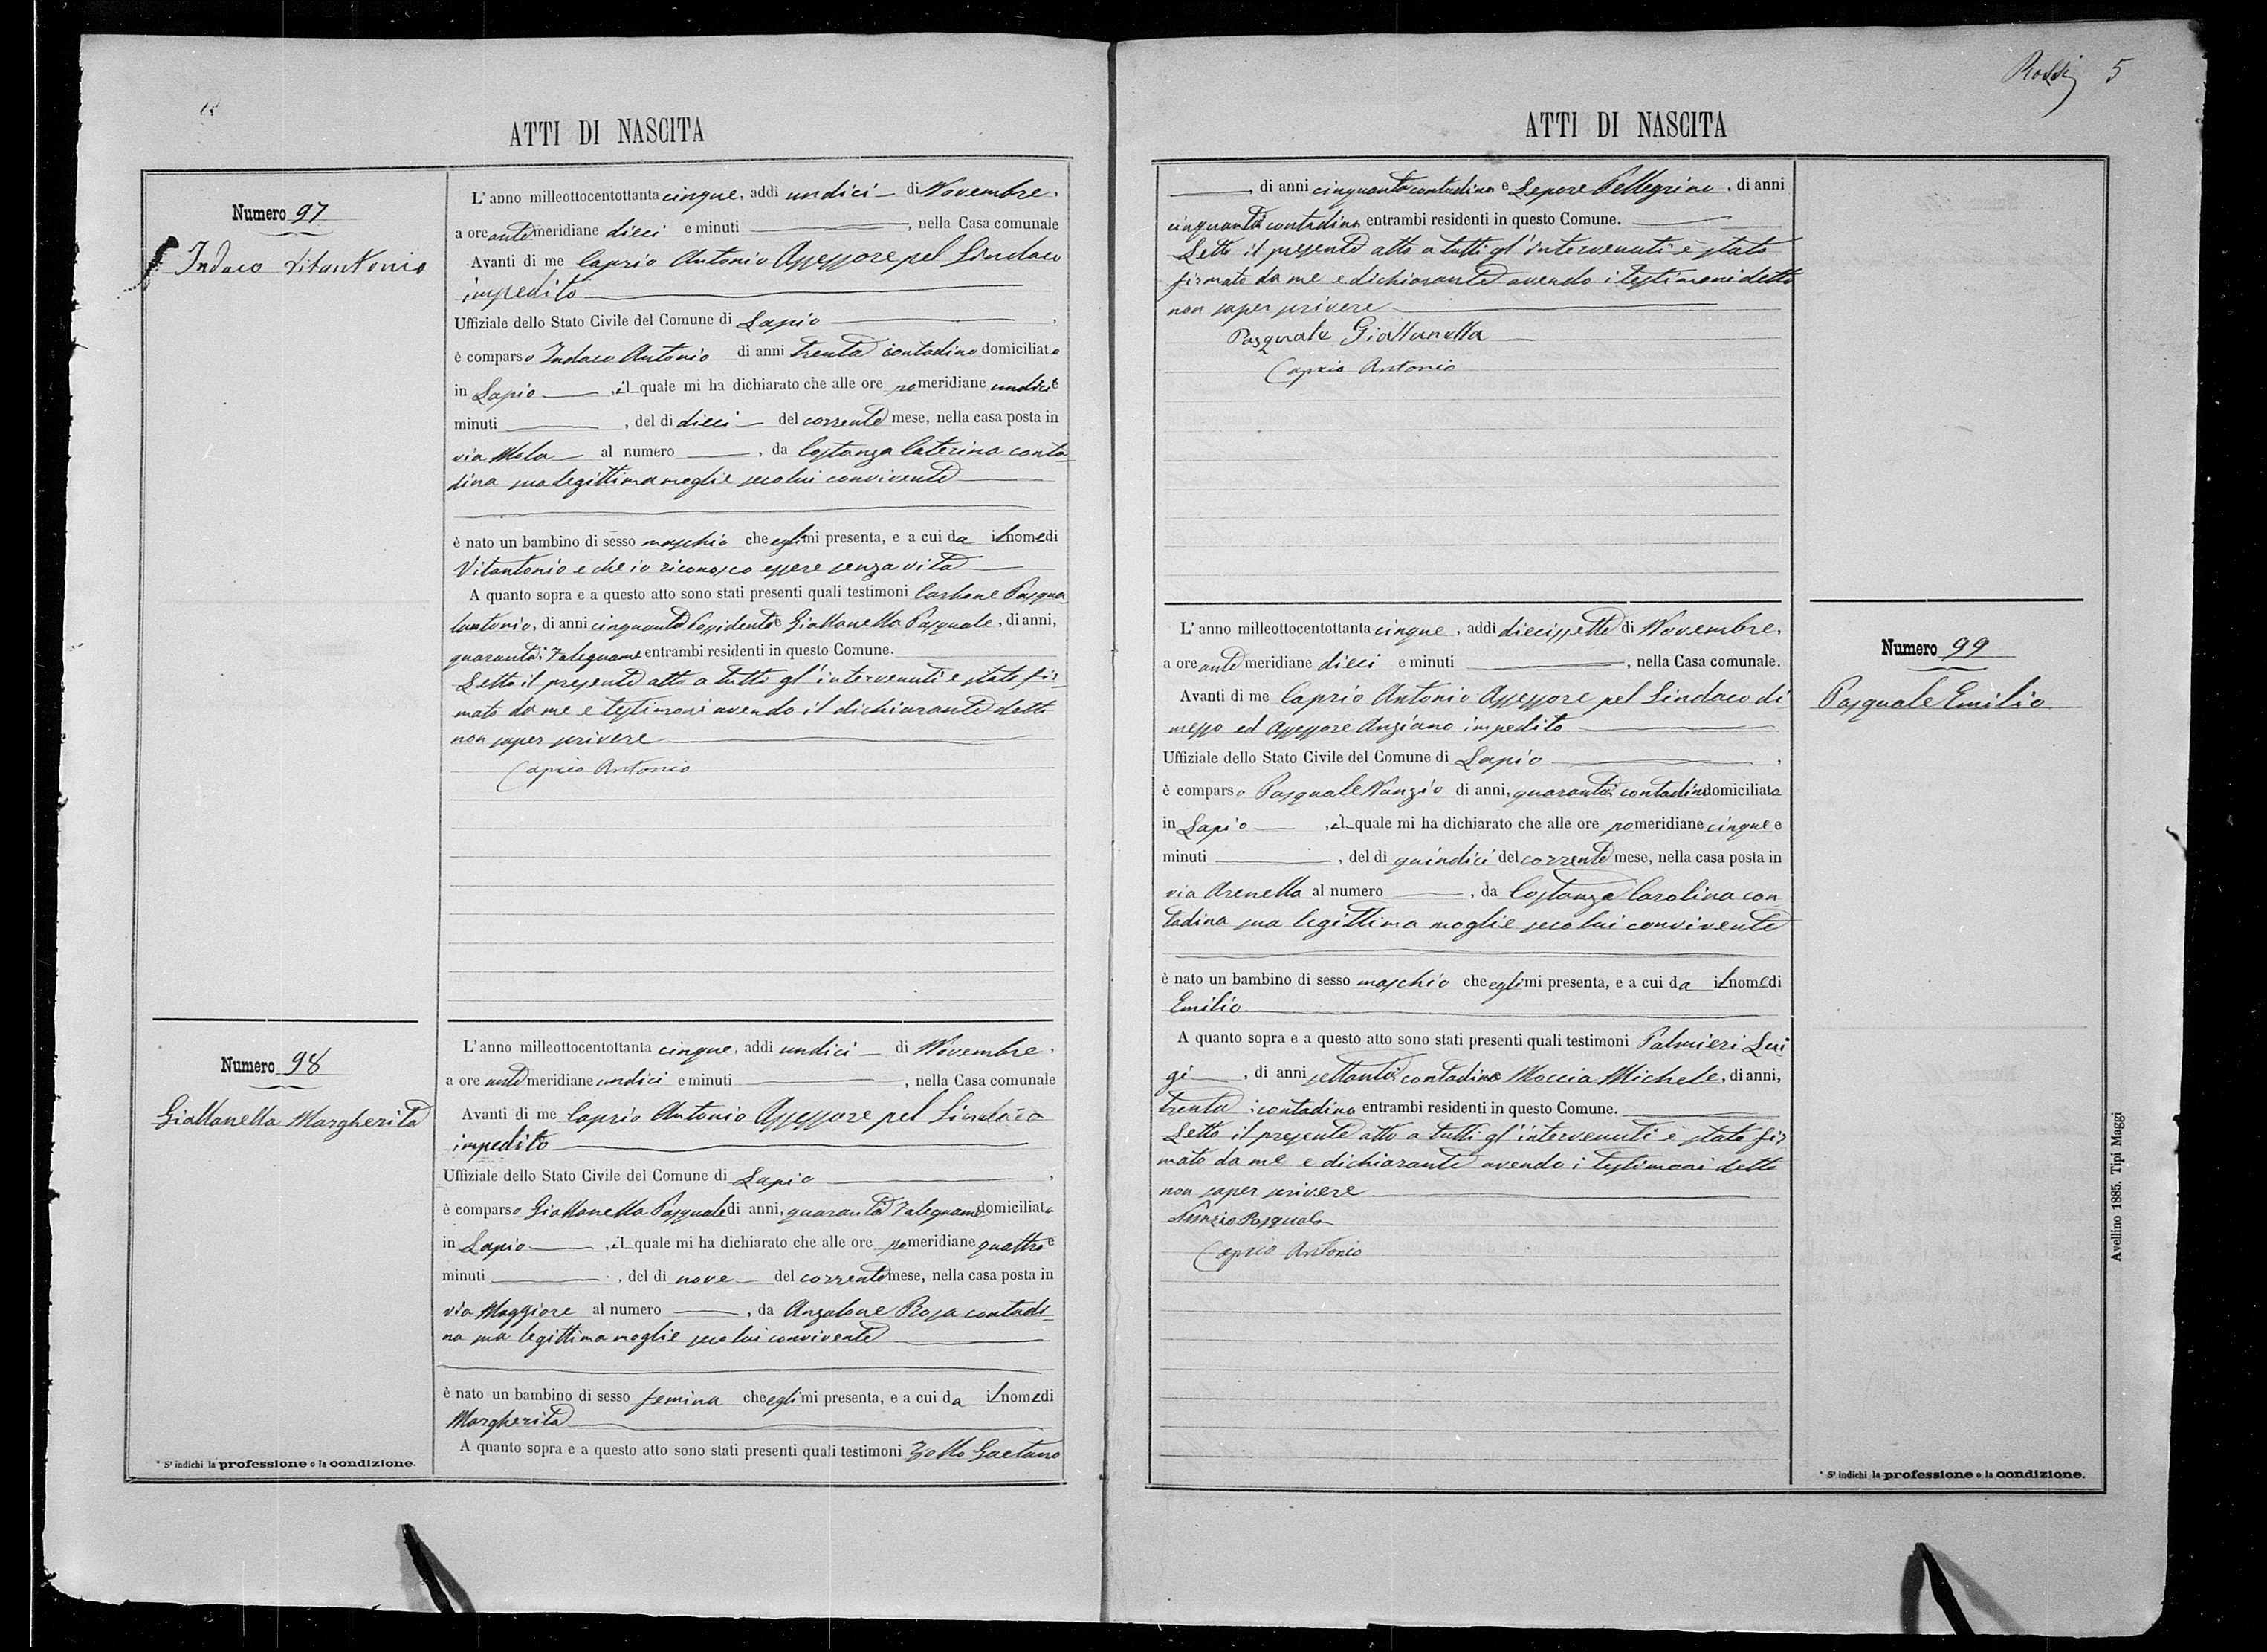 Rossi 5
ATTI DI NASCITA
Numero 97
Indaco Vitantonio
L'anno milleottocentottantacinque, addì undici di Novembre,
a ore antemeridiane dieci e minuti , nella Casa comunale
Avanti di me Caprio Antonio Assessore pel Sindaco
impedito
Uffiziale dello Stato Civile del Comune di Lapio ,
è comparso Indaco Antonio di anni trenta contadino domiciliato
in Lapio , il quale mi ha dichiarato che alle ore pomeridiane undici e
minuti , del dì dieci del corrente mese, nella casa posta in
via Mela al numero , da Costanza Caterina conta
dina sua legittima moglie seco lui convivente
è nato un bambino di sesso maschio che egli mi presenta, e a cui da il nome di
Vitantonio e che io riconosco essere senza vita
A quanto sopra e a questo atto sono stati presenti quali testimoni Carbone Pasqua
lantonio, di anni cinquanta Possidente e Giallanella Pasquale, di anni,
quaranta Falegname entrambi residenti in questo Comune.
Letto il presente atto a tutti gl'intervenuti è stato fir-
mato da me e testimoni avendo il dichiarante detto
non saper scrivere
Caprio Antonio
Numero 98
Giallanella Margherita
L'anno milleottocentottantacinque, addì undici di Novembre,
a ore antemeridiane undici e minuti , nella Casa comunale
Avanti di me Caprio Antonio Assessore pel Sindaco
impedito
Uffiziale dello Stato Civile del Comune di Lapio ,
è comparso Giallanella Pasquale di anni, quaranta Falegname domiciliato
in Lapio , il quale mi ha dichiarato che alle ore pomeridiane quattro e
minuti , del dì nove del corrente mese, nella casa posta in
via Maggiore al numero , da Anzalone Rosa contadi-
na sua legittima moglie seco lui convivente
è nato un bambino di sesso femina che egli mi presenta, e a cui da il nome di
Margherita
A quanto sopra e a questo atto sono stati presenti quali testimoni Zollo Gaetano
* S'indichi la professione o la condizione.
ATTI DI NASCITA
, di anni cinquanta contadino e Lepore Pellegrino, di anni
cinquanta contadino entrambi residenti in questo Comune.
Letto il presente atto a tutti gl'intervenuti è stato
firmato da me e dichiarante avendo i testimoni detto
non saper scrivere
Pasquale Giallanella
Caprio Antonio
Numero 99
Pasquale Emilio
L'anno milleottocentottantacinque, addì diecissette di Novembre,
a ore antemeridiane dieci e minuti , nella Casa comunale.
Avanti di me Caprio Antonio Assessore pel Sindaco di
messo ed Assessore Anziano impedito
Uffiziale dello Stato Civile del Comune di Lapio ,
è comparso Pasquale Nunzio di anni, quaranta contadino domiciliato
in Lapio , il quale mi ha dichiarato che alle ore pomeridiane cinque e
minuti , del dì quindici del corrente mese, nella casa posta in
via Arenella al numero , da Costanza Carolina con
tadina sua legittima moglie seco lui convivente
è nato un bambino di sesso maschio che egli mi presenta, e a cui da il nome di
Emilio
A quanto sopra e a questo atto sono stati presenti quali testimoni Palmieri Lui
gi , di anni settanta contadino e Moccia Michele, di anni,
trenta contadino entrambi residenti in questo Comune.
Letto il presente atto a tutti gl'intervenuti è stato fir
mato da me e dichiarante avendo i testimoni detto
non saper scrivere
Nunzio Pasquale
Caprio Antonio
* S'indichi la professione o la condizione.
Avellino 1885. Tipi Maggi